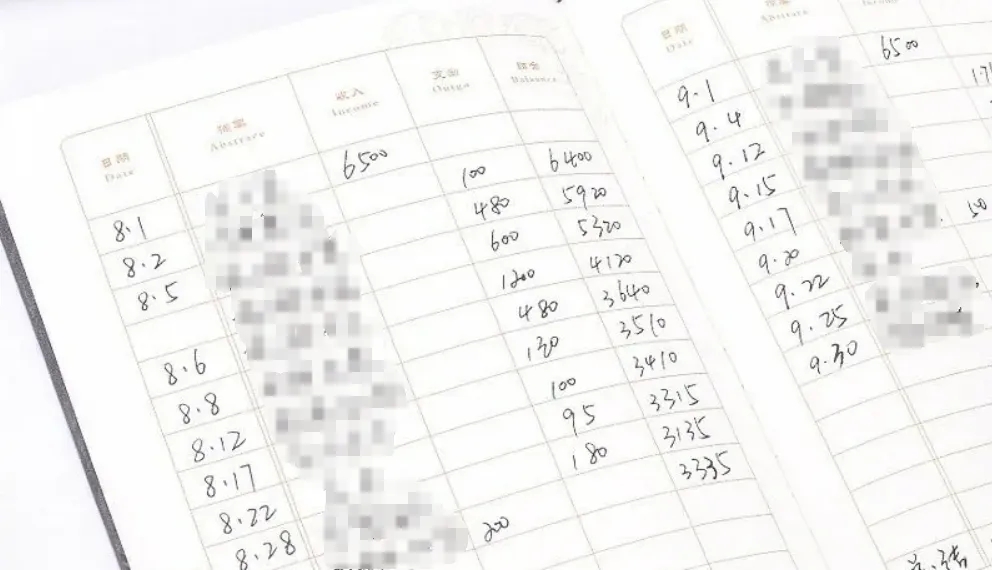 日期 Date 摘要 Abstract 收入 Income 支出 Outgo 结余 Balance
8.1 6500
8.2 100 6400
8.5 480 5920
600 5320
8.6 1200 4120
8.8 480 3640
8.12 130 3510
8.17 100 3410
8.22 95 3315
8.28 180 3135
200 3335
日期 Date 摘要 Abstract Income
9.1 6500
9.4
9.12
9.15
9.17
9.20
9.22
9.25
9.30